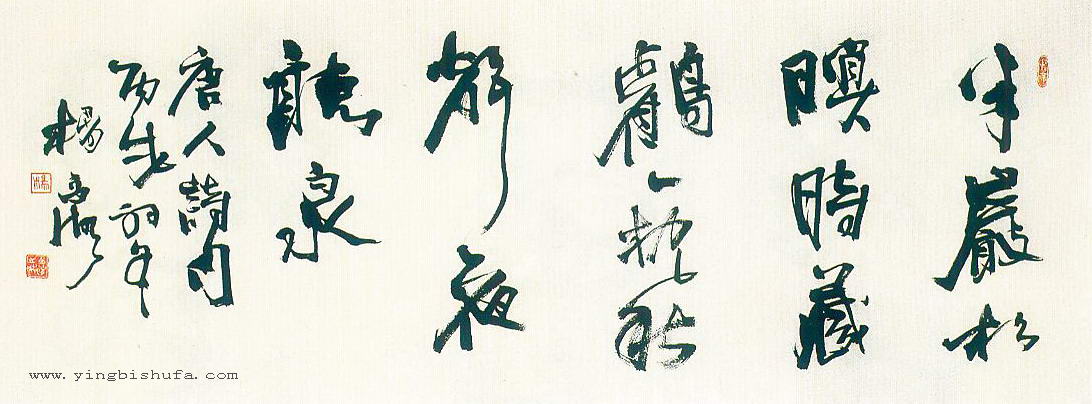 半巖松
暝時藏
鶴一枕秋
聲夜
聽泉
唐人詩句
丙戌年
楊
www.yingbishufa.com